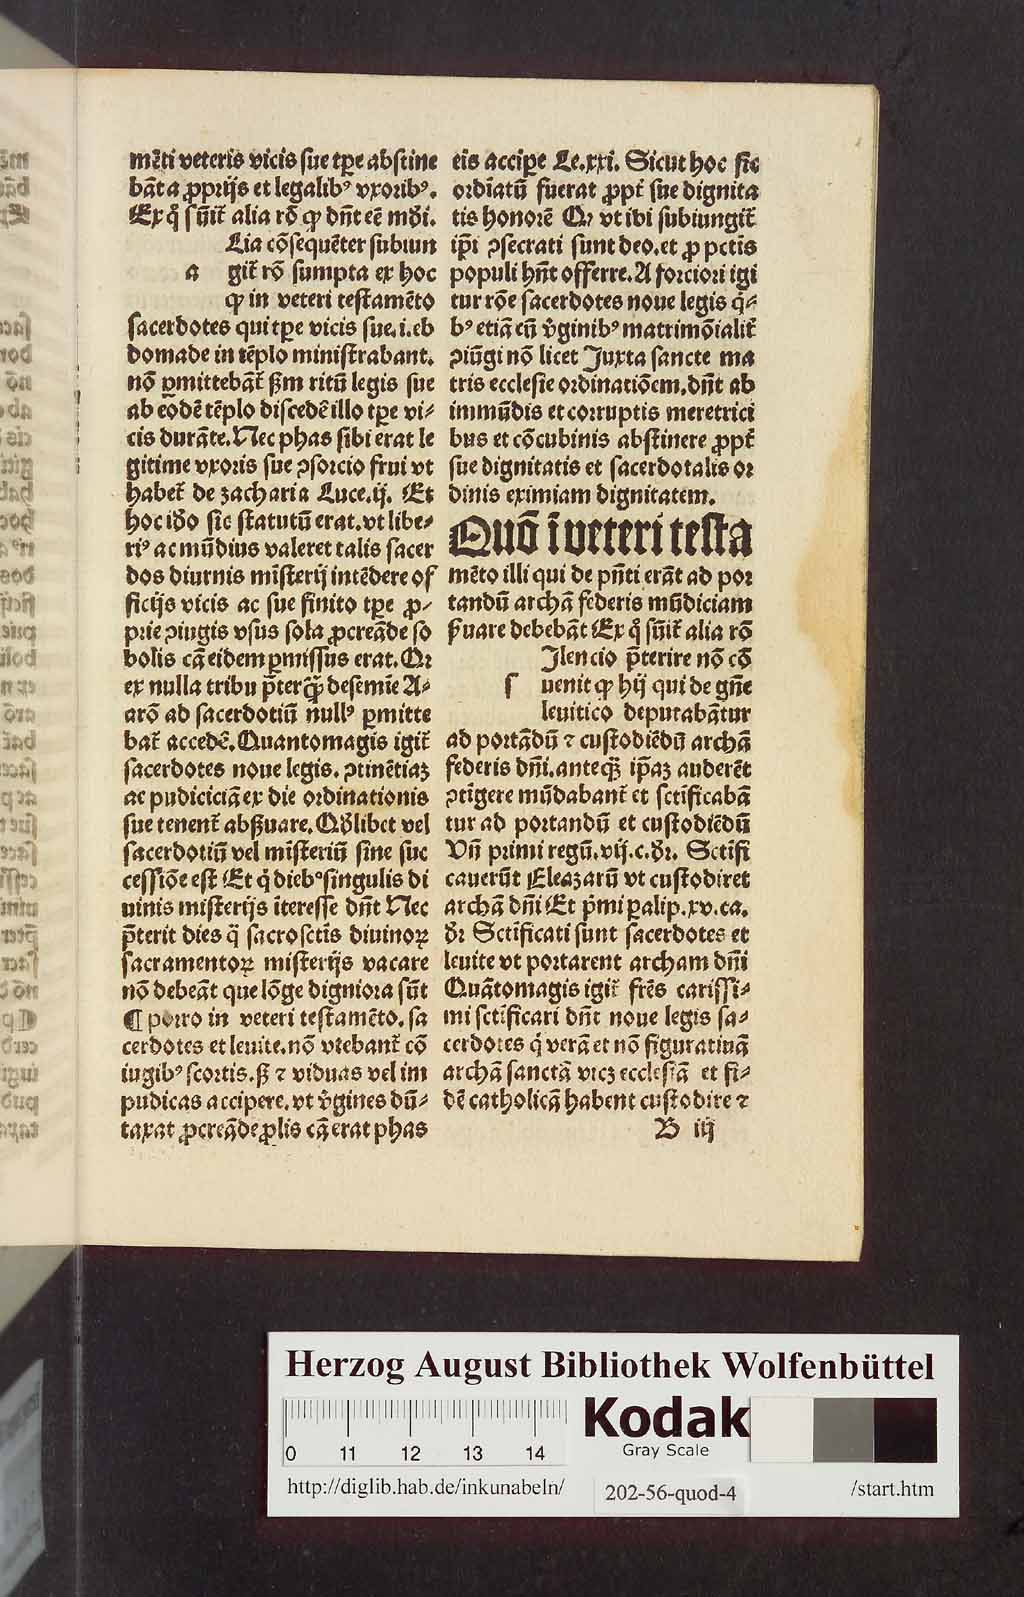 mēti veteris vicis sue tꝑe abstine
bāt a ꝓprijs et legalibꝰ vxoribꝰ.
Ex qͦ sūit᷑ alia rō ꝙ dn̄t eē mūdi.
Lia cōsequēter subiun
a git᷑ rō sumpta ex hoc
ꝙ in veteri testamēto
sacerdotes qui tꝑe vicis sue.i.eb
domade in tēplo ministrabant.
nō ꝑmittebāt᷑ ẜm ritū legis sue
ab eodē tēplo discedē illo tꝑe vi⸗
cis durāte. Nec phas sibi erat le
gitime vxoris sue ꝯsorcio frui vt
habet᷑ de zacharia Luce.ij. Et
hoc iḋo sic statutū erat. vt libe⸗
riꝰ ac mūdius valeret talis sacer
dos diurnis mīsterij intēdere of
ficijs vicis ac sue finito tꝑe ꝓ⸗
prie ꝯiugis vsus sola ꝓcreāde so
bolis cā eidem ꝑmissus erat. Qꝛ
ex nulla tribu p̄terqꝫ̄ de semīe A⸗
arō ad sacerdotiū nullꝰ ꝑmitte
bat᷑ accedē. Quantomagis igit᷑
sacerdotes noue legis. ꝯtinētiaꝫ
ac pudiciciā ex die ordinationis
sue tenent᷑ abẜuare. Qḋlibet vel
sacerdotiū vel mīsteriū sine suc
cessiōe est Et qͥ diebꝰ singulis di
uinis misterijs īteresse dn̄t Nec
p̄terit dies qͣ̄ sacrosctīs diuinoꝝ
sacramentoꝝ misterijs vacare
nō debeāt que lōge digniora sūt
¶ porro in veteri testamēto. sa
cerdotes et leuite. nō vrebant᷑ cō
iugibꝰ scortis. ẜ ⁊ viduas vel im
pudicas accipere. vt v̄gines dū⸗
taxat ꝓcreāde ꝓlis cā erat phas
eis accipe Le.xxi. Sicut hoc sic
ordiatū fuerat ꝓpt᷑ sue dignita
tis honorē Qꝛ vt ibi subiungit᷑
ip̄i ꝯsecrati sunt deo. et ꝓ pctīs
populi hn̄t offerre. A forciori igi
tur rōe sacerdotes noue legis qͥ⸗
bꝰ etiā cū v̄ginibꝰ matrimōialit᷑
ꝯiūgi nō licet Juxta sancte ma
tris ecclesie ordinatiōem. dn̄t ab
immūdis et corruptis meretrici
bus et cōcubinis abstinere ꝓpt᷑
sue dignitatis et sacerdotalis or
dinis eximiam dignitatem.
Quō ī veteri testa
mēto illi qui de pn̄ti erāt ad por
tandū archā federis mūdiciam
ẜuare debebāt Ex qͦ sūit᷑ alia rō
Ilencio p̄terire nō cō
s uenit ꝙ hij qui de gn̄e
leuitico deputabātur
ad portādū ⁊ custodiēdū archā
federis dn̄i. anteqꝫ̄ ip̄aꝫ auderēt
ꝯtīgere mūdabant᷑ et sctīficabā
tur ad portandū et custodiēdū
Vn̄ primi regū.vij.c.dꝛ. Sctīfi
cauerūt Eleazarū vt custodiret
archā dn̄i Et p̄mi ꝑalip.xv.ca.
dꝛ Sctīficati sunt sacerdotes et
leuite vt portarent archam dn̄i
Quātomagis igit᷑ frēs carissi⸗
mi sctīficari dn̄t noue legis sa⸗
cerdotes qͥ verā et nō figuratiuā
archā sanctā vicꝫ ecclesiā et fi⸗
dē catholicā habent custodire ⁊
B iij
Herzog August Bibliothek Wolfenbüttel
0 11 12 13 14
Kodak
Gray Scale
http://diglib.hab.de/inkunabeln/ 202-56-quod-4 /start.htm